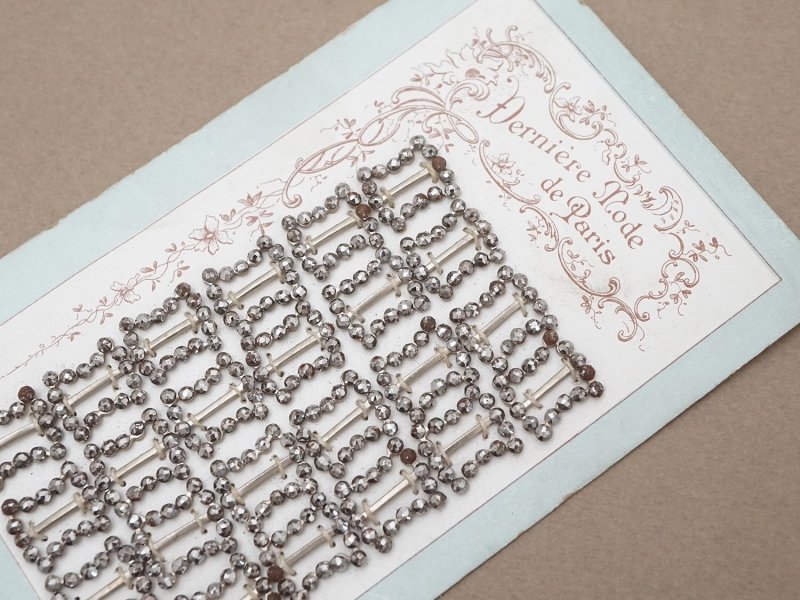 Dernière Mode
de Paris